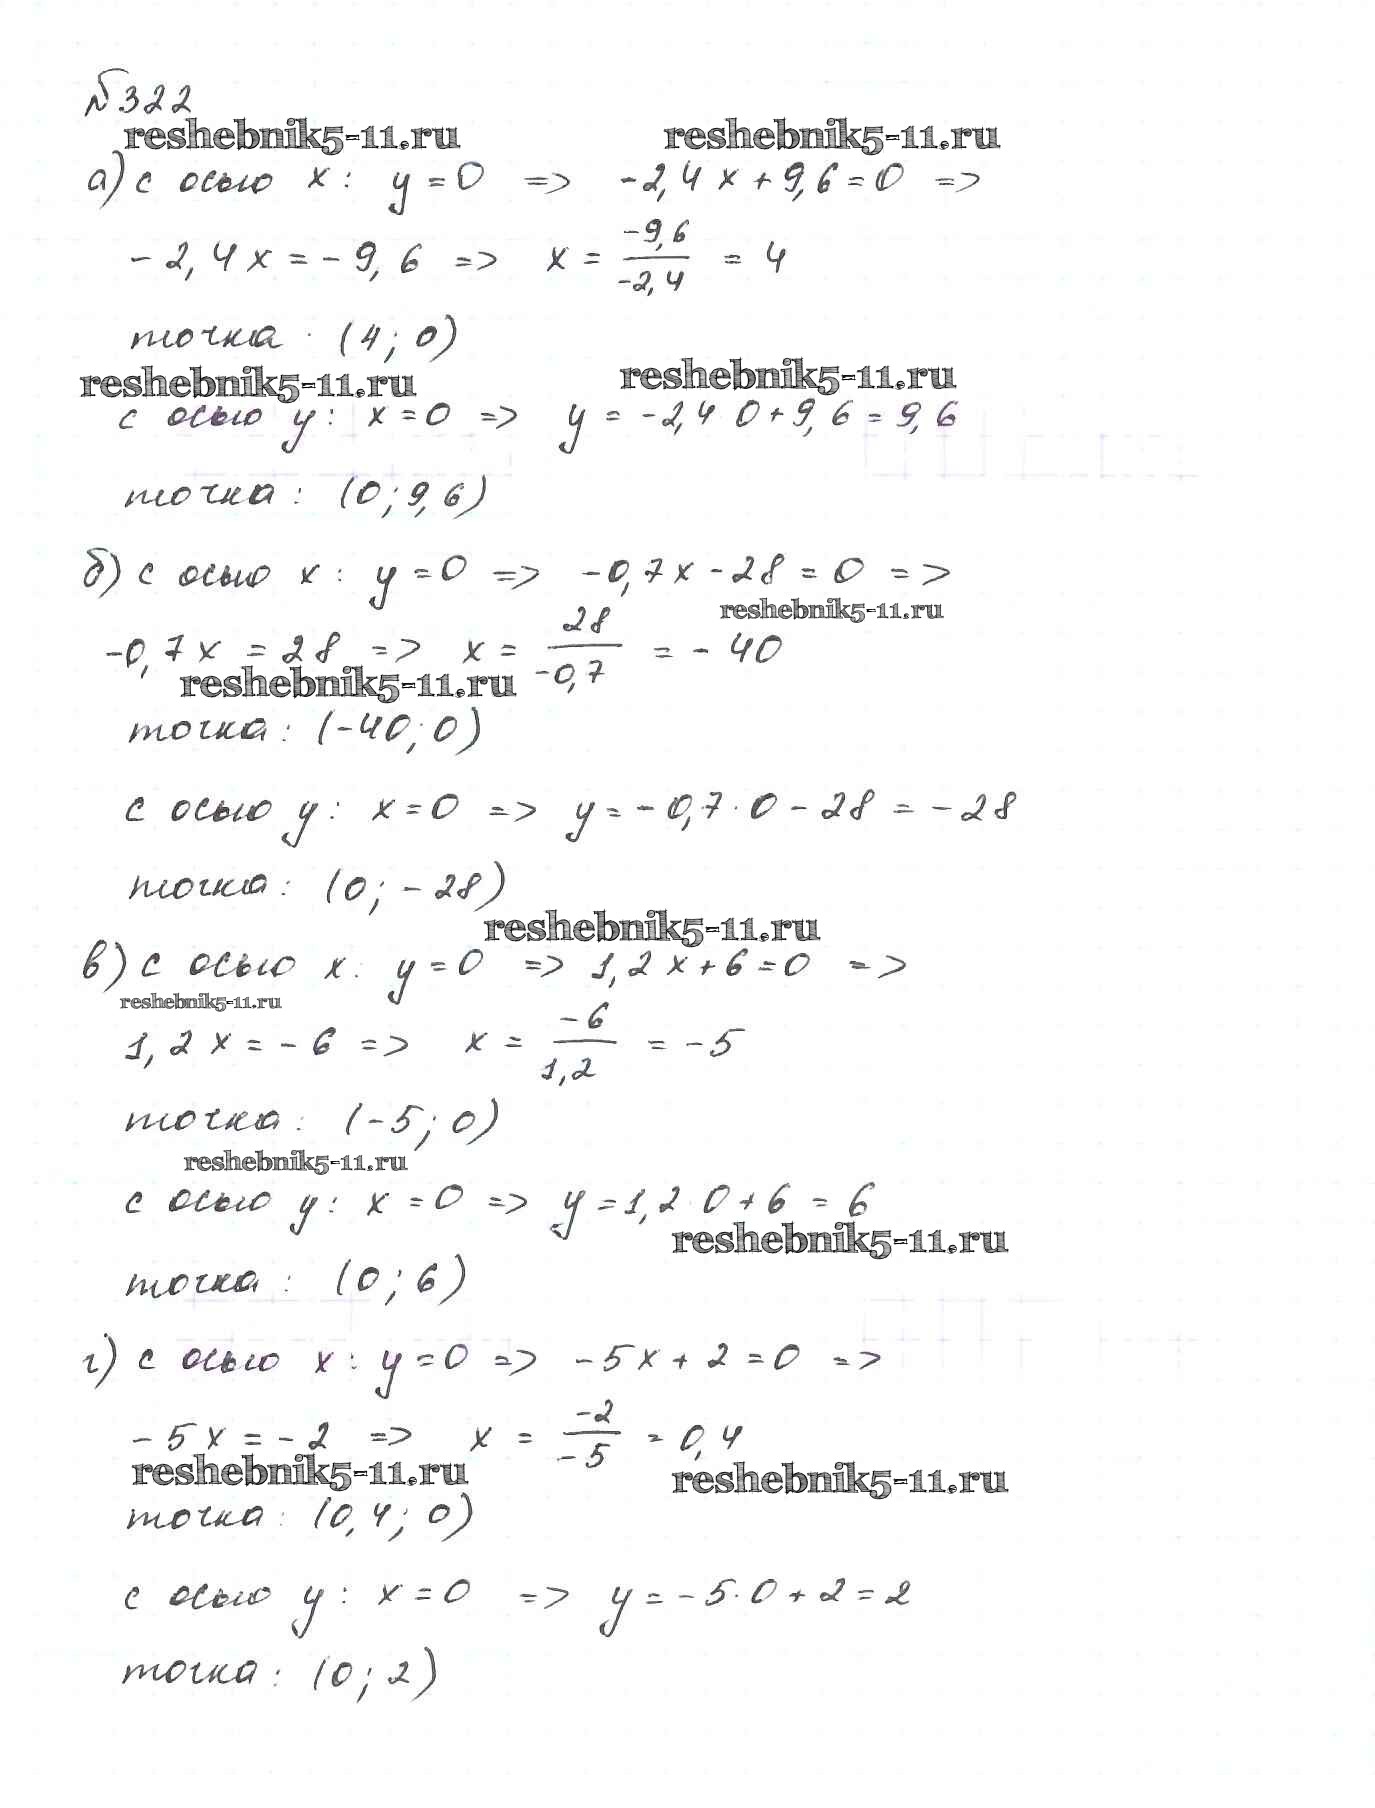 №322
reshebnik5-11.ru reshebnik5-11.ru
а) с осью x: y=0 => -2,4x+9,6=0 =>
-2,4x=-9,6 => x= -9,6/-2,4 = 4
точка (4; 0)
reshebnik5-11.ru reshebnik5-11.ru
с осью y: x=0 => y=-2,4·0+9,6=9,6
точка: (0; 9,6)
б) с осью x: y=0 => -0,7x-28=0 =>
reshebnik5-11.ru
-0,7x=28 => x= 28/-0,7 = -40
reshebnik5-11.ru
точка: (-40; 0)
с осью y: x=0 => y=-0,7·0-28=-28
точка: (0; -28)
reshebnik5-11.ru
в) с осью x: y=0 => 1,2x+6=0 =>
reshebnik5-11.ru
1,2x=-6 => x= -6/1,2 = -5
точка: (-5; 0)
reshebnik5-11.ru
с осью y: x=0 => y=1,2·0+6=6
reshebnik5-11.ru
точка: (0; 6)
г) с осью x: y=0 => -5x+2=0 =>
-5x=-2 => x= -2/-5 = 0,4
reshebnik5-11.ru reshebnik5-11.ru
точка: (0,4; 0)
с осью y: x=0 => y=-5·0+2=2
точка: (0; 2)